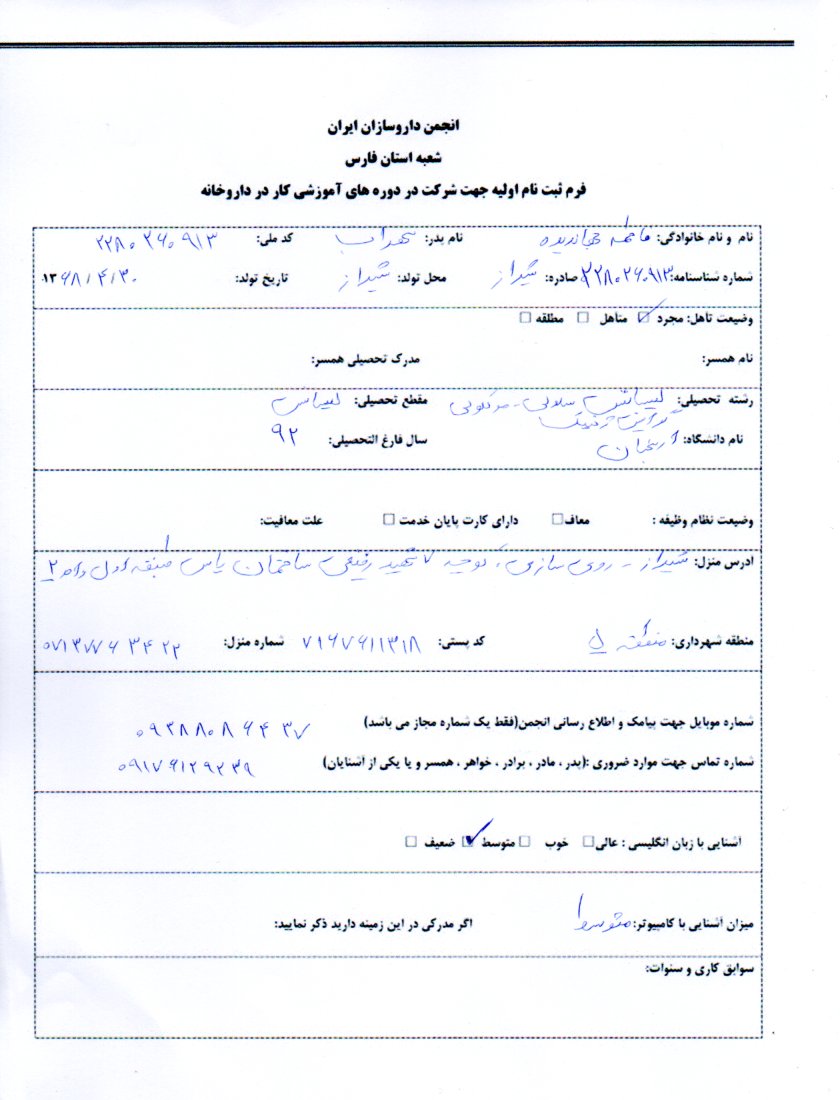 انجمن داروسازان ایران
شعبه استان فارس
فرم ثبت نام اولیه جهت شرکت در دوره های آموزشی کار در داروخانه
نام و نام خانوادگی: فاطمه جهاندیده نام پدر: سهراب کد ملی: ۲۲۸۰۲۶۰۹۱۳
شماره شناسنامه: ۲۲۸۰۲۶۰۹۱۳ صادره: شیراز محل تولد: شیراز تاریخ تولد: ۱۳۶۸/۴/۳۰
وضعیت تاهل: مجرد ☑ متاهل ☐ مطلقه ☐
نام همسر: مدرک تحصیلی همسر:
رشته تحصیلی: لیسانس سلولی - مولکولی مقطع تحصیلی: لیسانس
گرایش ژنتیک
نام دانشگاه: ارسنجان سال فارغ التحصیلی: ۹۲
وضعیت نظام وظیفه : معاف ☐ دارای کارت پایان خدمت ☐ علت معافیت:
ادرس منزل: شیراز - ساختمان یاس طبقه اول واحد ۲
منطقه شهرداری: منطقه کد پستی: ۷۱۶۷۶۱۱۳۱۸ شماره منزل: ۰۷۱۳۷۷۶۳۴۲۲
شماره موبایل جهت پیامک و اطلاع رسانی انجمن(فقط یک شماره مجاز می باشد) ۰۹۳۸۸۰۸۶۴۳۷
شماره تماس جهت موارد ضروری :(پدر ، مادر ، برادر ، خواهر ، همسر و یا یکی از آشنایان) ۰۹۱۷۶۱۲۹۲۳۹
آشنایی با زبان انگلیسی : عالی ☐ خوب ☐ متوسط ☑ ضعیف ☐
میزان آشنایی با کامپیوتر: متوسط اگر مدرکی در این زمینه دارید ذکر نمایید:
سوابق کاری و سنوات: